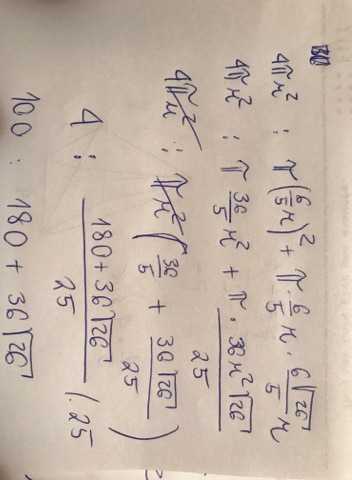 4πr² : π(6/5 r)² + π · 6/5 r · 6√26/5 r
4πr² : π 36/5 r² + π · 36r²√26/25
4πr² : πr² (36/5 + 36√26/25)
4 : 180+36√26/25 /·25
100 : 180 + 36√26